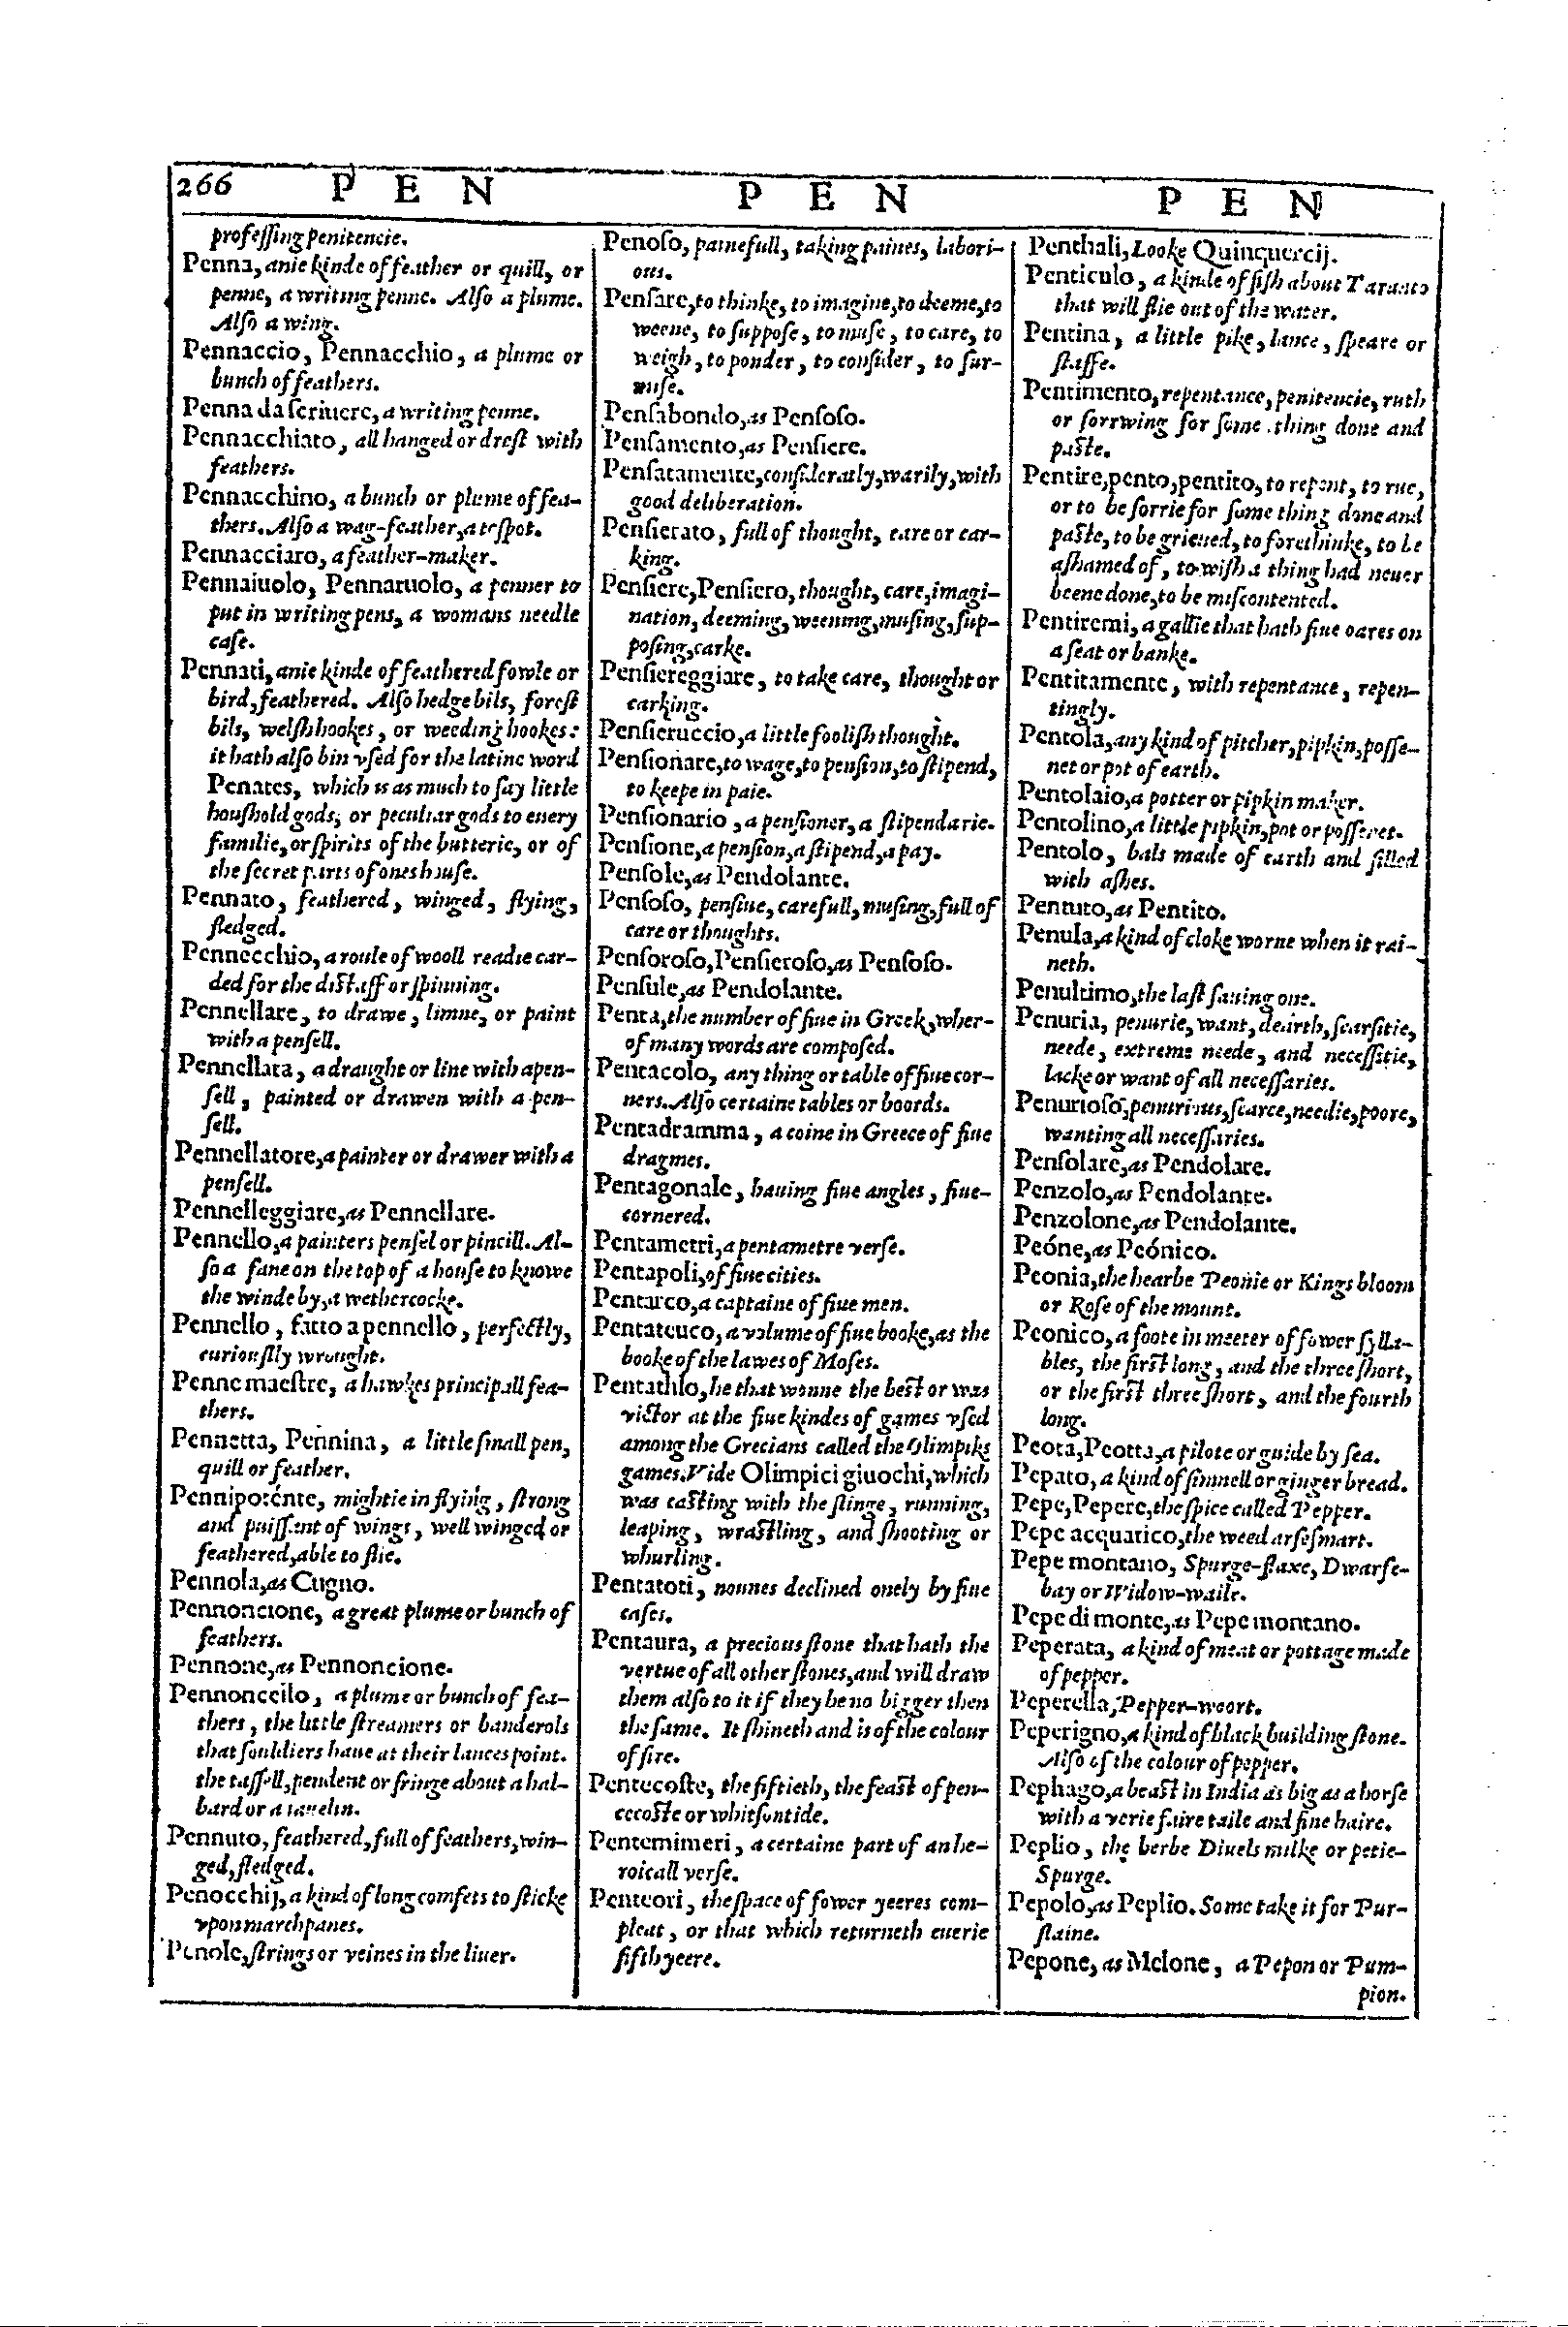 266 P E N P E N P E N
profeſſing penitencie.
Penna, anie kinde of feather or quill, or
penne, a writing penne. Alſo a plume.
Alſo a wing.
Pennaccio, Pennacchio, a plume or
bunch of feathers.
Penna da ſcriuere, a writing penne.
Pennacchiato, all hanged or dreſt with
feathers.
Pennacchino, a bunch or plume of fea-
thers. Alſo a wag-feather, a toſpot.
Pennacciaro, a feather-maker.
Pennaiuolo, Pennaruolo, a penner to
put in writing pens, a womans needle
caſe.
Pennati, anie kinde of feathered fowle or
bird, feathered. Alſo hedge bils, foreſt
bils, welſh hookes, or weeding hookes:
it hath alſo bin vſed for the latine word
Penates, which is as much to ſay little
houſhold gods, or peculiar gods to euery
familie, or ſpirits of the butterie, or of
the ſecret parts of ones houſe.
Pennato, feathered, winged, flying,
fledged.
Pennecchio, a roule of wooll readie car-
ded for the diſtaff or ſpinning.
Pennellare, to drawe, limne, or paint
with a penſell.
Pennellata, a draught or line with a pen-
ſell, painted or drawen with a pen-
ſell.
Pennellatore, a painter or drawer with a
penſell.
Pennelleggiare, as Pennellare.
Pennello, a painters penſel or pincill. Al-
ſo a fane on the top of a houſe to knowe
the winde by, a wethercocke.
Pennello, fatto a pennello, perfectly,
curiouſlly wrought.
Penne maeſtre, a hawkes principall fea-
thers.
Pennetta, Pennina, a little ſmall pen,
quill or feather.
Pennipoténte, mightie in flying, ſtrong
and puiſſant of wings, well winged or
feathered, able to flie.
Pennola, as Cugno.
Pennoncione, a great plume or bunch of
feathers.
Pennone, as Pennoncione.
Pennoncello, a plume or bunch of fea-
thers, the little ſtreamers or banderols
that ſouldiers haue at their lances point.
the taſſell, pendent or fringe about a hal-
bard or a iauelin.
Pennuto, feathered, full of feathers, win-
ged, fledged.
Penocchij, a kind of long comfets to ſticke
vpon marchpanes.
Penole, ſtrings or veines in the liuer.
Penoſo, painefull, taking paines, labori-
ous.
Penſare, to thinke, to imagine, to deeme, to
weene, to ſuppoſe, to muſe, to care, to
weigh, to ponder, to conſider, to ſur-
miſe.
Penſabondo, as Penſoſo.
Penſamento, as Penſiere.
Penſatamente, conſideratly, warily, with
good deliberation.
Penſierato, full of thought, care or car-
king.
Penſiere, Penſiero, thought, care, imagi-
nation, deeming, weening, muſing, ſup-
poſing, carke.
Penſiereggiare, to take care, thought or
carking.
Penſieruccio, a little fooliſh thought.
Penſionare, to wage, to penſion, to ſtipend,
to keepe in paie.
Penſionario, a penſioner, a ſtipendarie.
Penſione, a penſion, a ſtipend, a pay.
Penſole, as Pendolante.
Penſoſo, penſiue, carefull, muſing, full of
care or thoughts.
Penſoroſo, Penſieroſo, as Penſoſo.
Penſule, as Pendolante.
Penta, the number of fiue in Greek, wher-
of many words are compoſed.
Pentacolo, any thing or table of fiue cor-
ners. Alſo certaine tables or boords.
Pentadramma, a coine in Greece of fiue
dragmes.
Pentagonale, hauing fiue angles, fiue-
cornered.
Pentametri, a pentametre verſe.
Pentapoli, of fiue cities.
Pentarco, a captaine of fiue men.
Pentateuco, a volume of fiue booke, as the
booke of the lawes of Moſes.
Pentathlo, he that wonne the beſt or was
victor at the fiue kindes of games vſed
among the Grecians called the Olimpiks
games. Vide Olimpici giuochi, which
was caſting with the ſlinge, running,
leaping, wraſtling, and ſhooting or
whurling.
Pentatoti, nounes declined onely by fiue
caſes.
Pentaura, a precious ſtone that hath the
vertue of all other ſtones, and will draw
them alſo to it if they be no bigger then
the ſame. It ſhineth and is of the colour
of fire.
Pentecoſte, the fiftieth, the feaſt of pen-
tecoſte or whitſontide.
Pentemimeri, a certaine part of an he-
roicall verſe.
Penteori, the ſpace of fower yeeres com-
pleat, or that which returneth euerie
fifth yeere.
Penthali, Looke Quinquercij.
Penticulo, a kinde of fiſh about Taranto
that will flie out of the water.
Pentina, a little pike, lance, ſpeare or
ſtaffe.
Pentimento, repentance, penitencie, ruth
or ſorrwing for ſome thing done and
paſte.
Pentire, pento, pentito, to repent, to rue,
or to be ſorrie for ſome thing done and
paſte, to be grieued, to forethinke, to be
aſhamed of, to wiſh a thing had neuer
beene done, to be miſcontented.
Pentiremi, a gallie that hath fiue oares on
a ſeat or banke.
Pentitamente, with repentance, repen-
tingly.
Pentola, any kind of pitcher, pipkin, poſſe-
net or pot of earth.
Pentolaio, a potter or pipkin maker.
Pentolino, a little pipkin, pot or poſſenet.
Pentolo, bals made of earth and filled
with aſhes.
Pentuto, as Pentito.
Penula, a kind of cloke worne when it rai-
neth.
Penultimo, the laſt ſauing one.
Penuria, penurie, want, dearth, ſcarſitie,
neede, extreme neede, and neceſſitie,
lacke or want of all neceſſaries.
Penurioſo, penurious, ſcarce, needie, poore,
wanting all neceſſaries.
Penſolare, as Pendolare.
Penzolo, as Pendolante.
Penzolone, as Pendolante.
Peóne, as Peónico.
Peonia, the hearbe Peonie or Kings bloom
or Roſe of the mount.
Peonico, a foote in meeter of fower ſylla-
bles, the firſt long, and the three ſhort,
or the firſt three ſhort, and the fourth
long.
Peota, Peotta, a pilote or guide by ſea.
Pepato, a kind of ſimnell or ginger bread.
Pepe, Pepere, the ſpice called Pepper.
Pepe acquatico, the weed arſeſmart.
Pepe montano, Spurge-flaxe, Dwarfe-
bay or Widow-waile.
Pepe di monte, as Pepe montano.
Peperata, a kind of meat or pottage made
of pepper.
Peperella, Pepper-woort.
Peperigno, a kind of black building ſtone.
Alſo of the colour of pepper.
Pephago, a beaſt in India as big as a horſe
with a verie faire taile and fine haire.
Peplio, the herbe Diuels milke or petie-
Spurge.
Pepolo, as Peplio. Some take it for Pur-
ſlaine.
Pepone, as Melone, a Pepon or Pum-
pion.